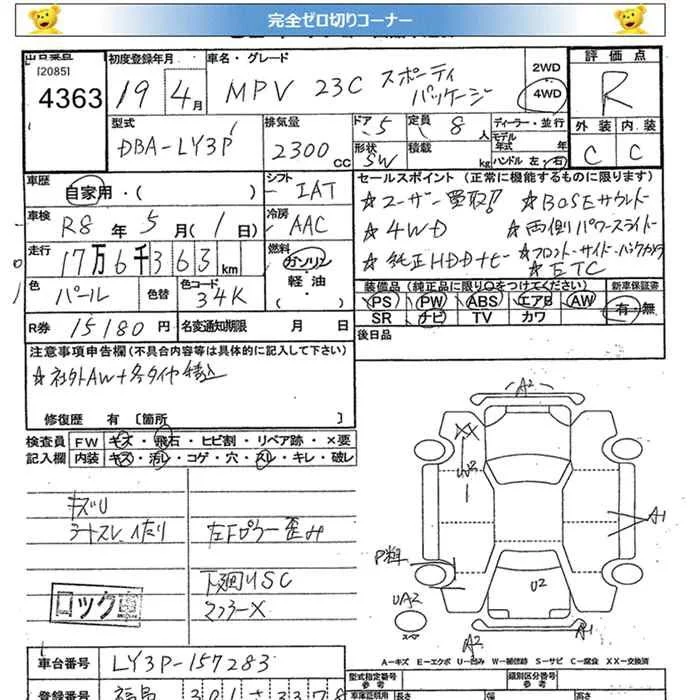 完全ゼロ切りコーナー
出品票番 初度登録年月 車名・グレード 2WD 評価点
[2085]
4363 19 4月 MPV 23C スポーティパッケージ 4WD R
型式 排気量 ドア 5 定員 8人 ディーラー・並行 外装 内装
DBA-LY3P 2300cc 形状 SW 積載 kg モデル年式 年 ハンドル 左・右 C C
車歴 自家用・( ) シフト IAT セールスポイント(正常に機能するものに限ります)
車検 R8年5月(1日) 冷房 AAC
☆ユーザー買取!! ☆BOSEサウンド
☆4WD ☆両側パワースライド
走行 17万6千363km 燃料 ガソリン・軽油・
☆純正HDDナビ ☆フロント・サイド・バックカメラ
☆ETC
色 パール 色替 色コード 34K
装備品(純正品に限り○をつけてください) 新車保証書
PS PW ABS エアB AW 有・無
SR ナビ TV カワ
R券 15180円 名変通知期限 月 日
後日品
注意事項申告欄(不具合内容等は具体的に記入して下さい)
☆社外AW+冬タイヤ積込
修復歴 有 [箇所 ]
検査員 FW キズ・飛石・ヒビ割・リペア跡・×要
記入欄 内装 キズ・汚レ・コゲ・穴・スレ・キレ・破レ
キズU
シートスレ、へたり 左Fピラー歪み
下廻りSC
マフラーX
ロック車
A2
XX
W2
A1
P粗
U2
UA2
スペア
A2
A1
A-キズ E-エクボ U-凹み W-補修跡 S-サビ C-腐食 XX-交換済
車台番号 LY3P-157283
型式指定番号 参考 類別区分番号 参考
登録番号 福島 301 さ 3378
車庫証明用 参考 長さ 幅 高さ